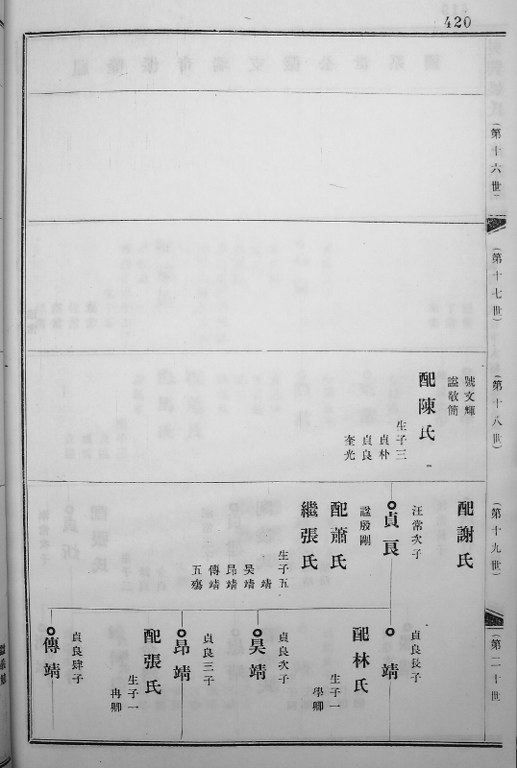 420
(第十六世)
(第十七世)
(第十八世)
號文輝
諡敬簡
配陳氏
生子三
貞朴
貞良
奎光
(第十九世)
配謝氏
汪常次子
貞良
諡殷剛
配蕭氏
繼張氏
生子五
靖
昊靖
昂靖
傳靖
五殤
(第二十世
貞良長子
靖
配林氏
生子一
學卿
貞良次子
昊靖
貞良三子
昂靖
配張氏
生子一
冉卿
貞良肆子
傳靖